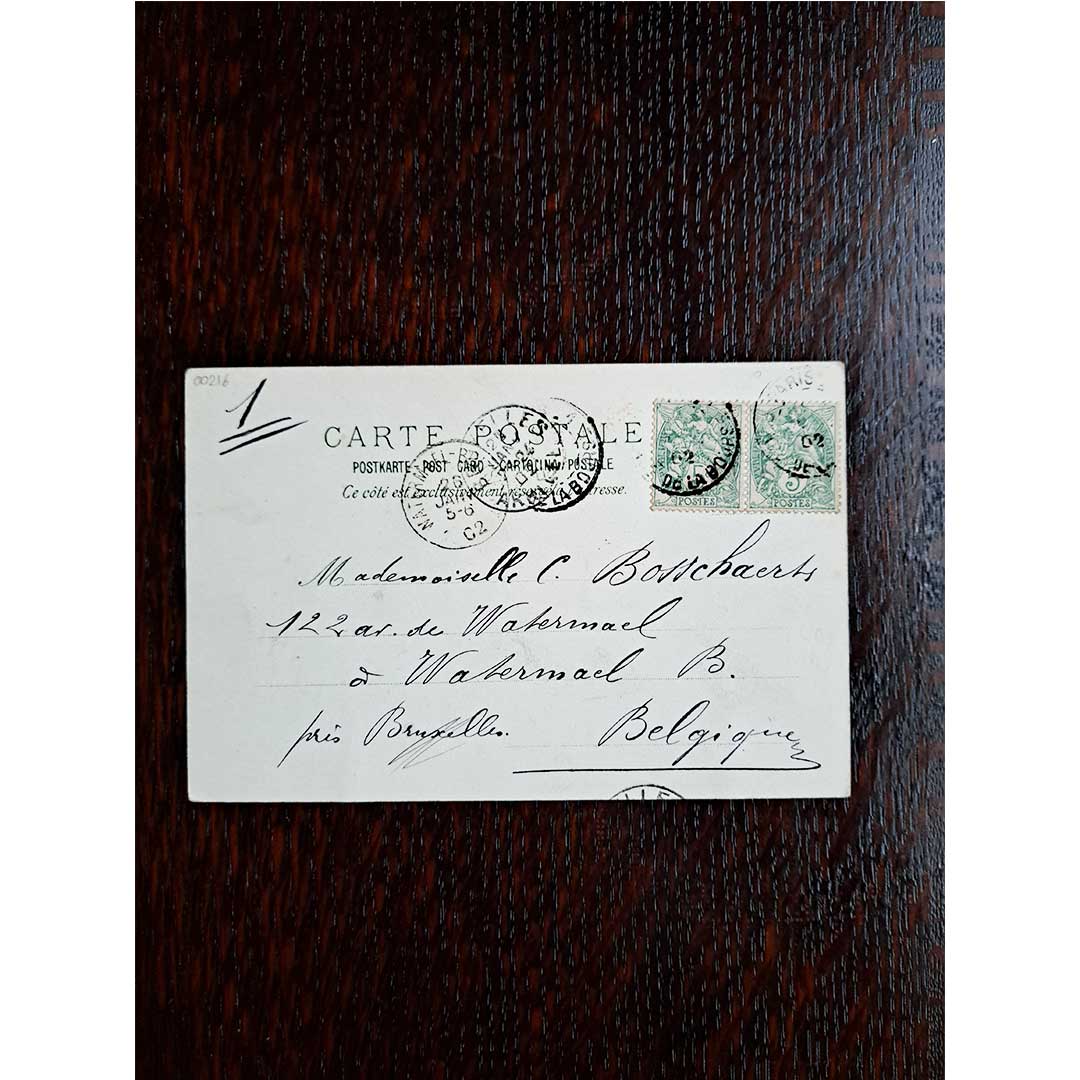 00216
1
CARTE POSTALE
POSTKARTE - POST CARD - CARTOLINA POSTALE
Ce côté est exclusivement réservé à l'adresse.
PARIS
02
DE LA BOURSE
02
5
POSTES
POSTES
26
JANV
5-6
02
DE LA BOURSE
Mademoiselle C. Bosschaerts
122 av. de Watermael
à Watermael B.
près Bruxelles. Belgique
LLE